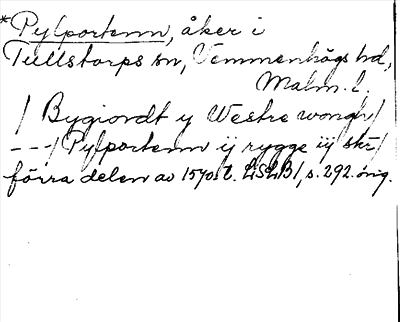 *Pylportenn, åker i
Tullstorps sn, Vemmenhögs hd,
Malm. l.
/ Bygiordt y Westre wongh/
---/Pylportenn ij rygge iij skr/
förra delen av 1570-t. LSLB1, s. 292. orig.